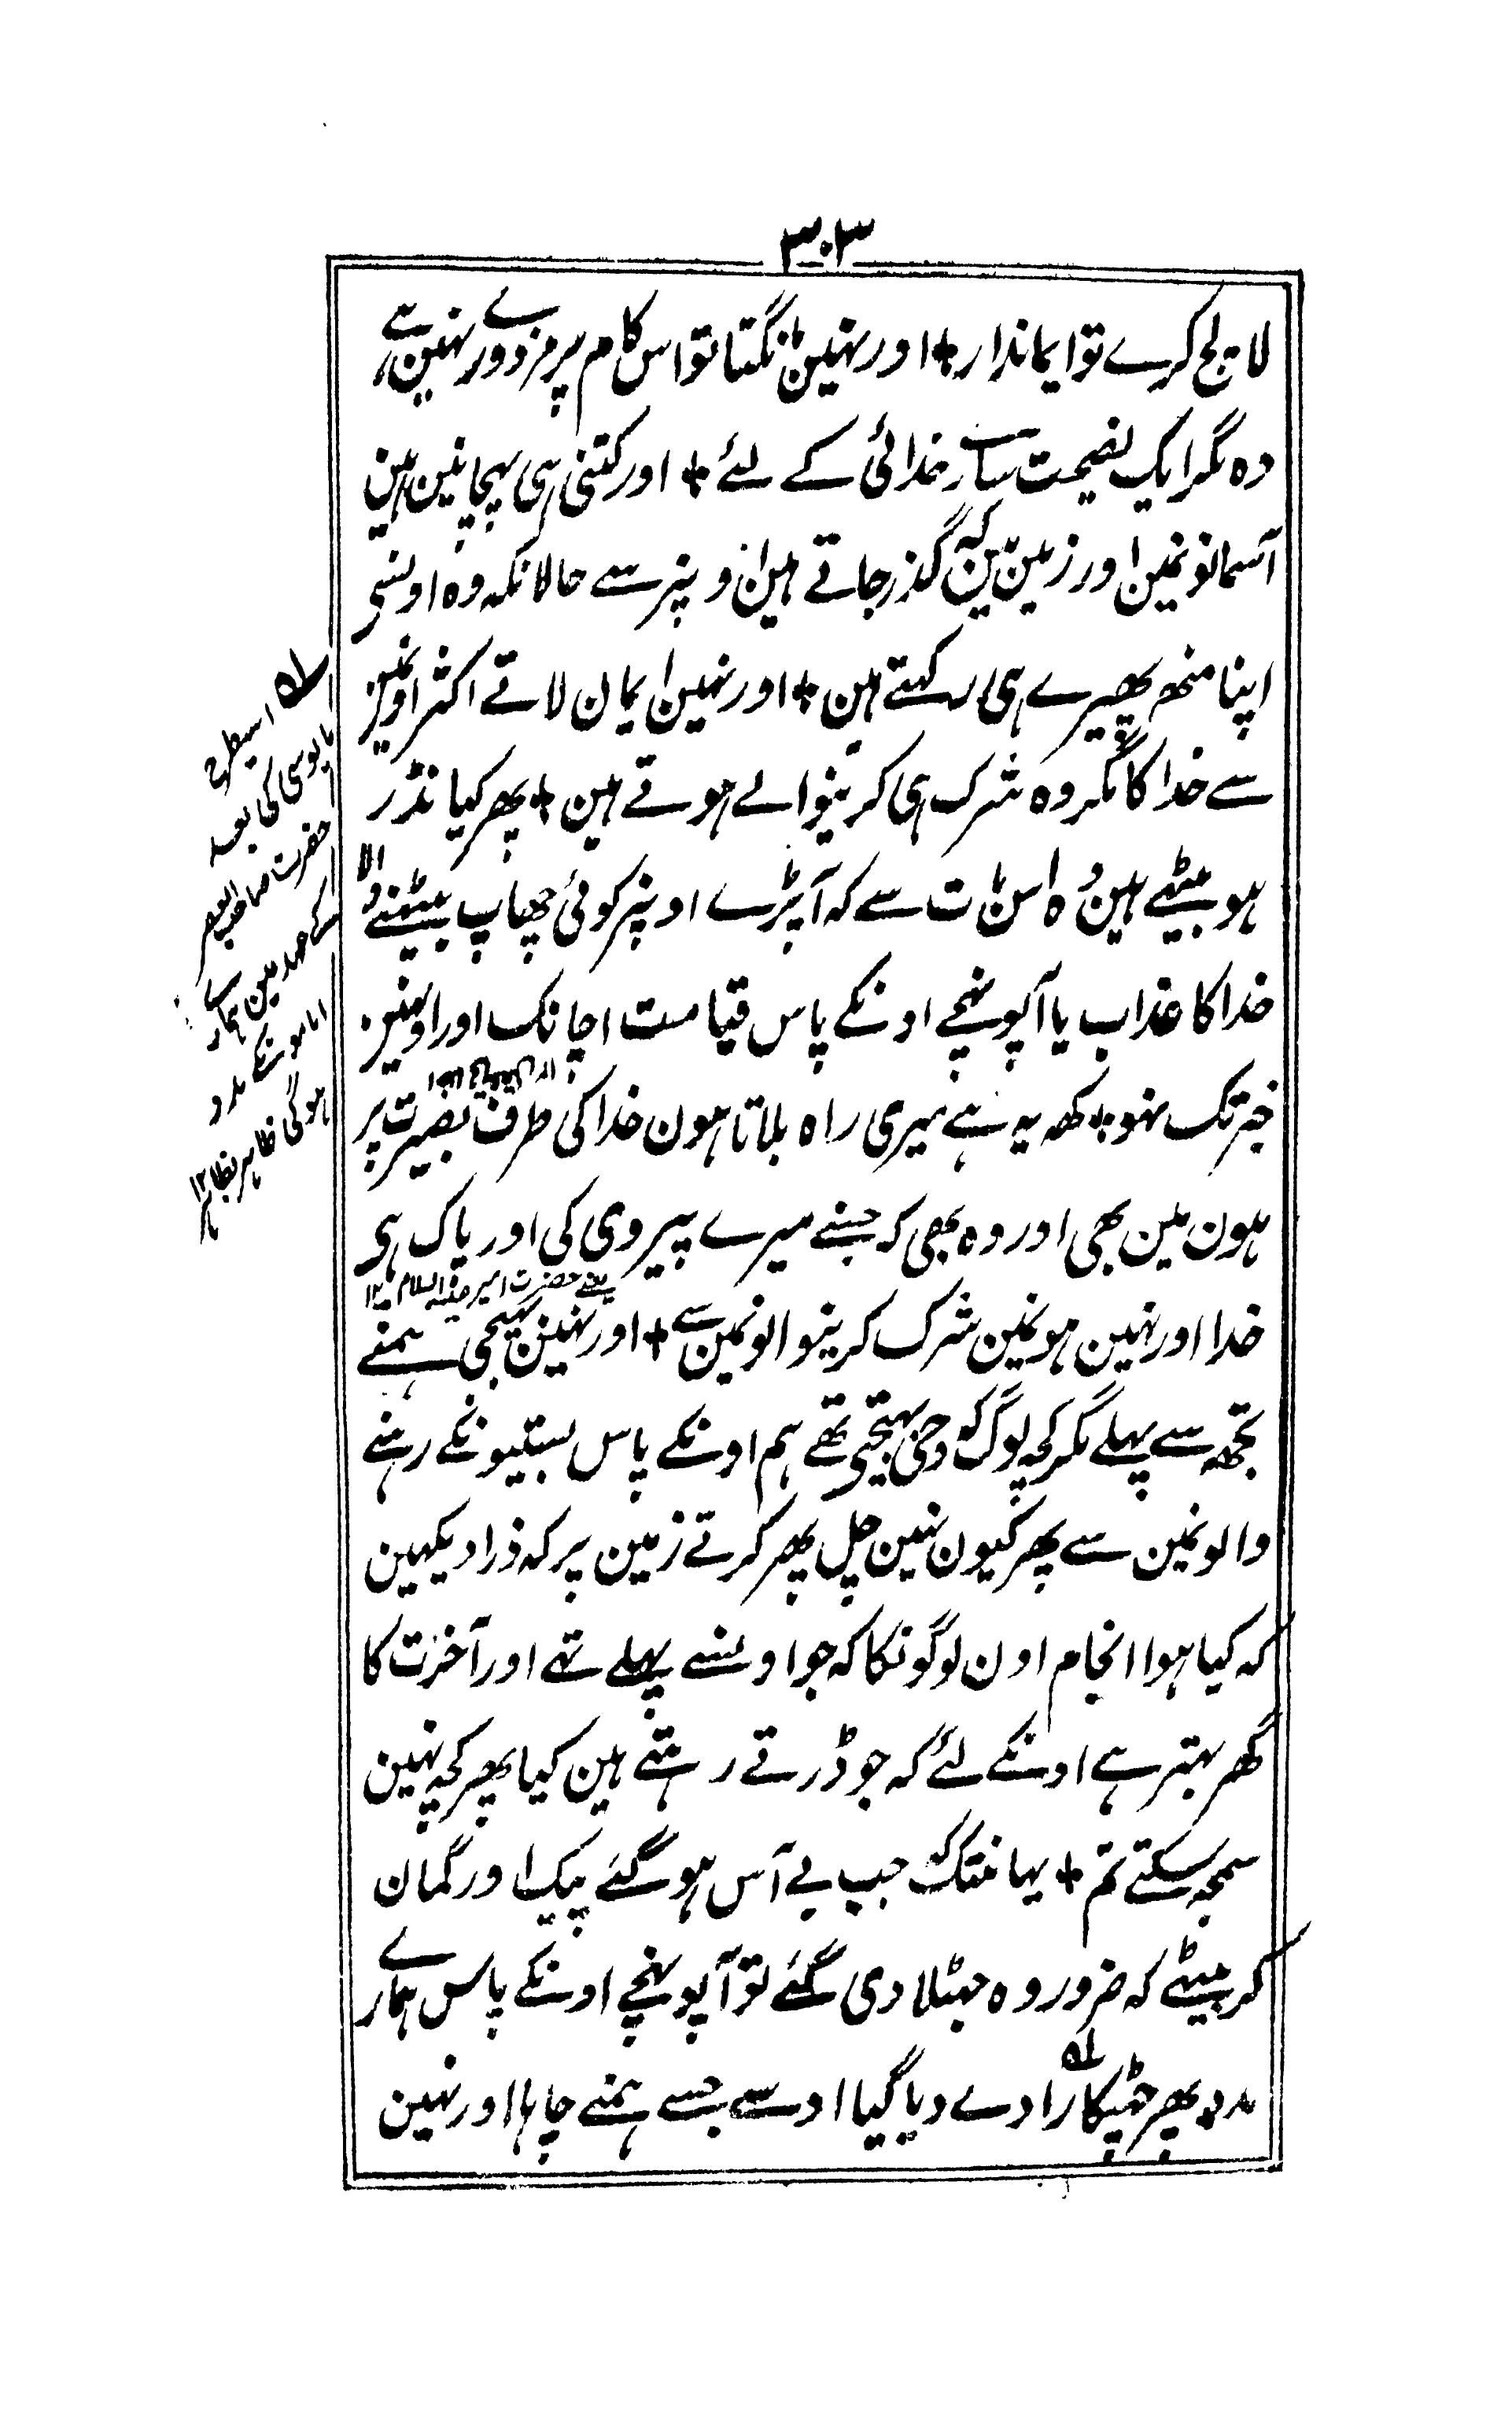 ۳۰۳
لالچ کرے تو ایماندار + اور نہین مانگتا تو اس کام پر مزدوری نہین ہے
وہ مگر ایک نصیحت سارے خدائی کے لئے + اور کتنی ہی پہچانین ہین
آسمانونمین اور زمین مین کہ گذر جاتے ہین اونپر سے حالانکہ وہ اونسی
اپنا منھ پھیرے ہی رکہتے ہین + اور نہین ایمان لاتے اکثر اونمین
سے خدا کا مگر وہ شرک ہی کرینوالے ہوتے ہین + پھر کیا نڈر
ہو بیٹھے ہین وہ اس بات سے کہ آپڑے اونپر کوئی چھاپ بیٹھنے والا
خدا کا عذاب یا آپہونچے اونکے پاس قیامت اچانک اور اونہین
خبر تک نہو + کہہ یہ ہے میری راہ بلاتا ہون خدا کی طرف بصیرت پر
ہون مین بھی اور وہ بھی کہ جسنے میرے پیروی کی اور پاک ہی
یعنے حضرت امیر علیہ السلام ۱۲
خدا اور نہین ہونمین شرک کرینوالونمین سے + اور نہین بھیجی ہمنے
تجھہ سے پہلے مگر کچہ لوگ کہ وحی بھیجتے تھے ہم اونکے پاس بستیونکے رہنے
والونمین سے پھر کیون نہین چل پھر کرتے زمین پر کہ ذرا دیکہین
کہ کیا ہوا انجام اون لوگونکا کہ جو اونسے پہلے تھے اور آخرت کا
گھر بہتر ہے اونکے لئے کہ جو ڈرتے رہتے ہین کیا پھر کچہ نہین
سمجہ سکتے تم + یہانتک کہ جب بے آس ہو گئے پیک اور گمان
کر بیٹھے کہ ضرور وہ جہٹلا دی گئے تو آپہونچے اونکے پاس ہمارے
مدد پھر چھٹکارا دے دیا گیا اوسے جسے ہمنے چاہا اور نہین
اسیطرح
مایوسی کی بعد
حضرت صاحب العصر
کے عہد مین ہمارے
امامونکے مدد
ہوگی ظاہر بظاہر ۱۲